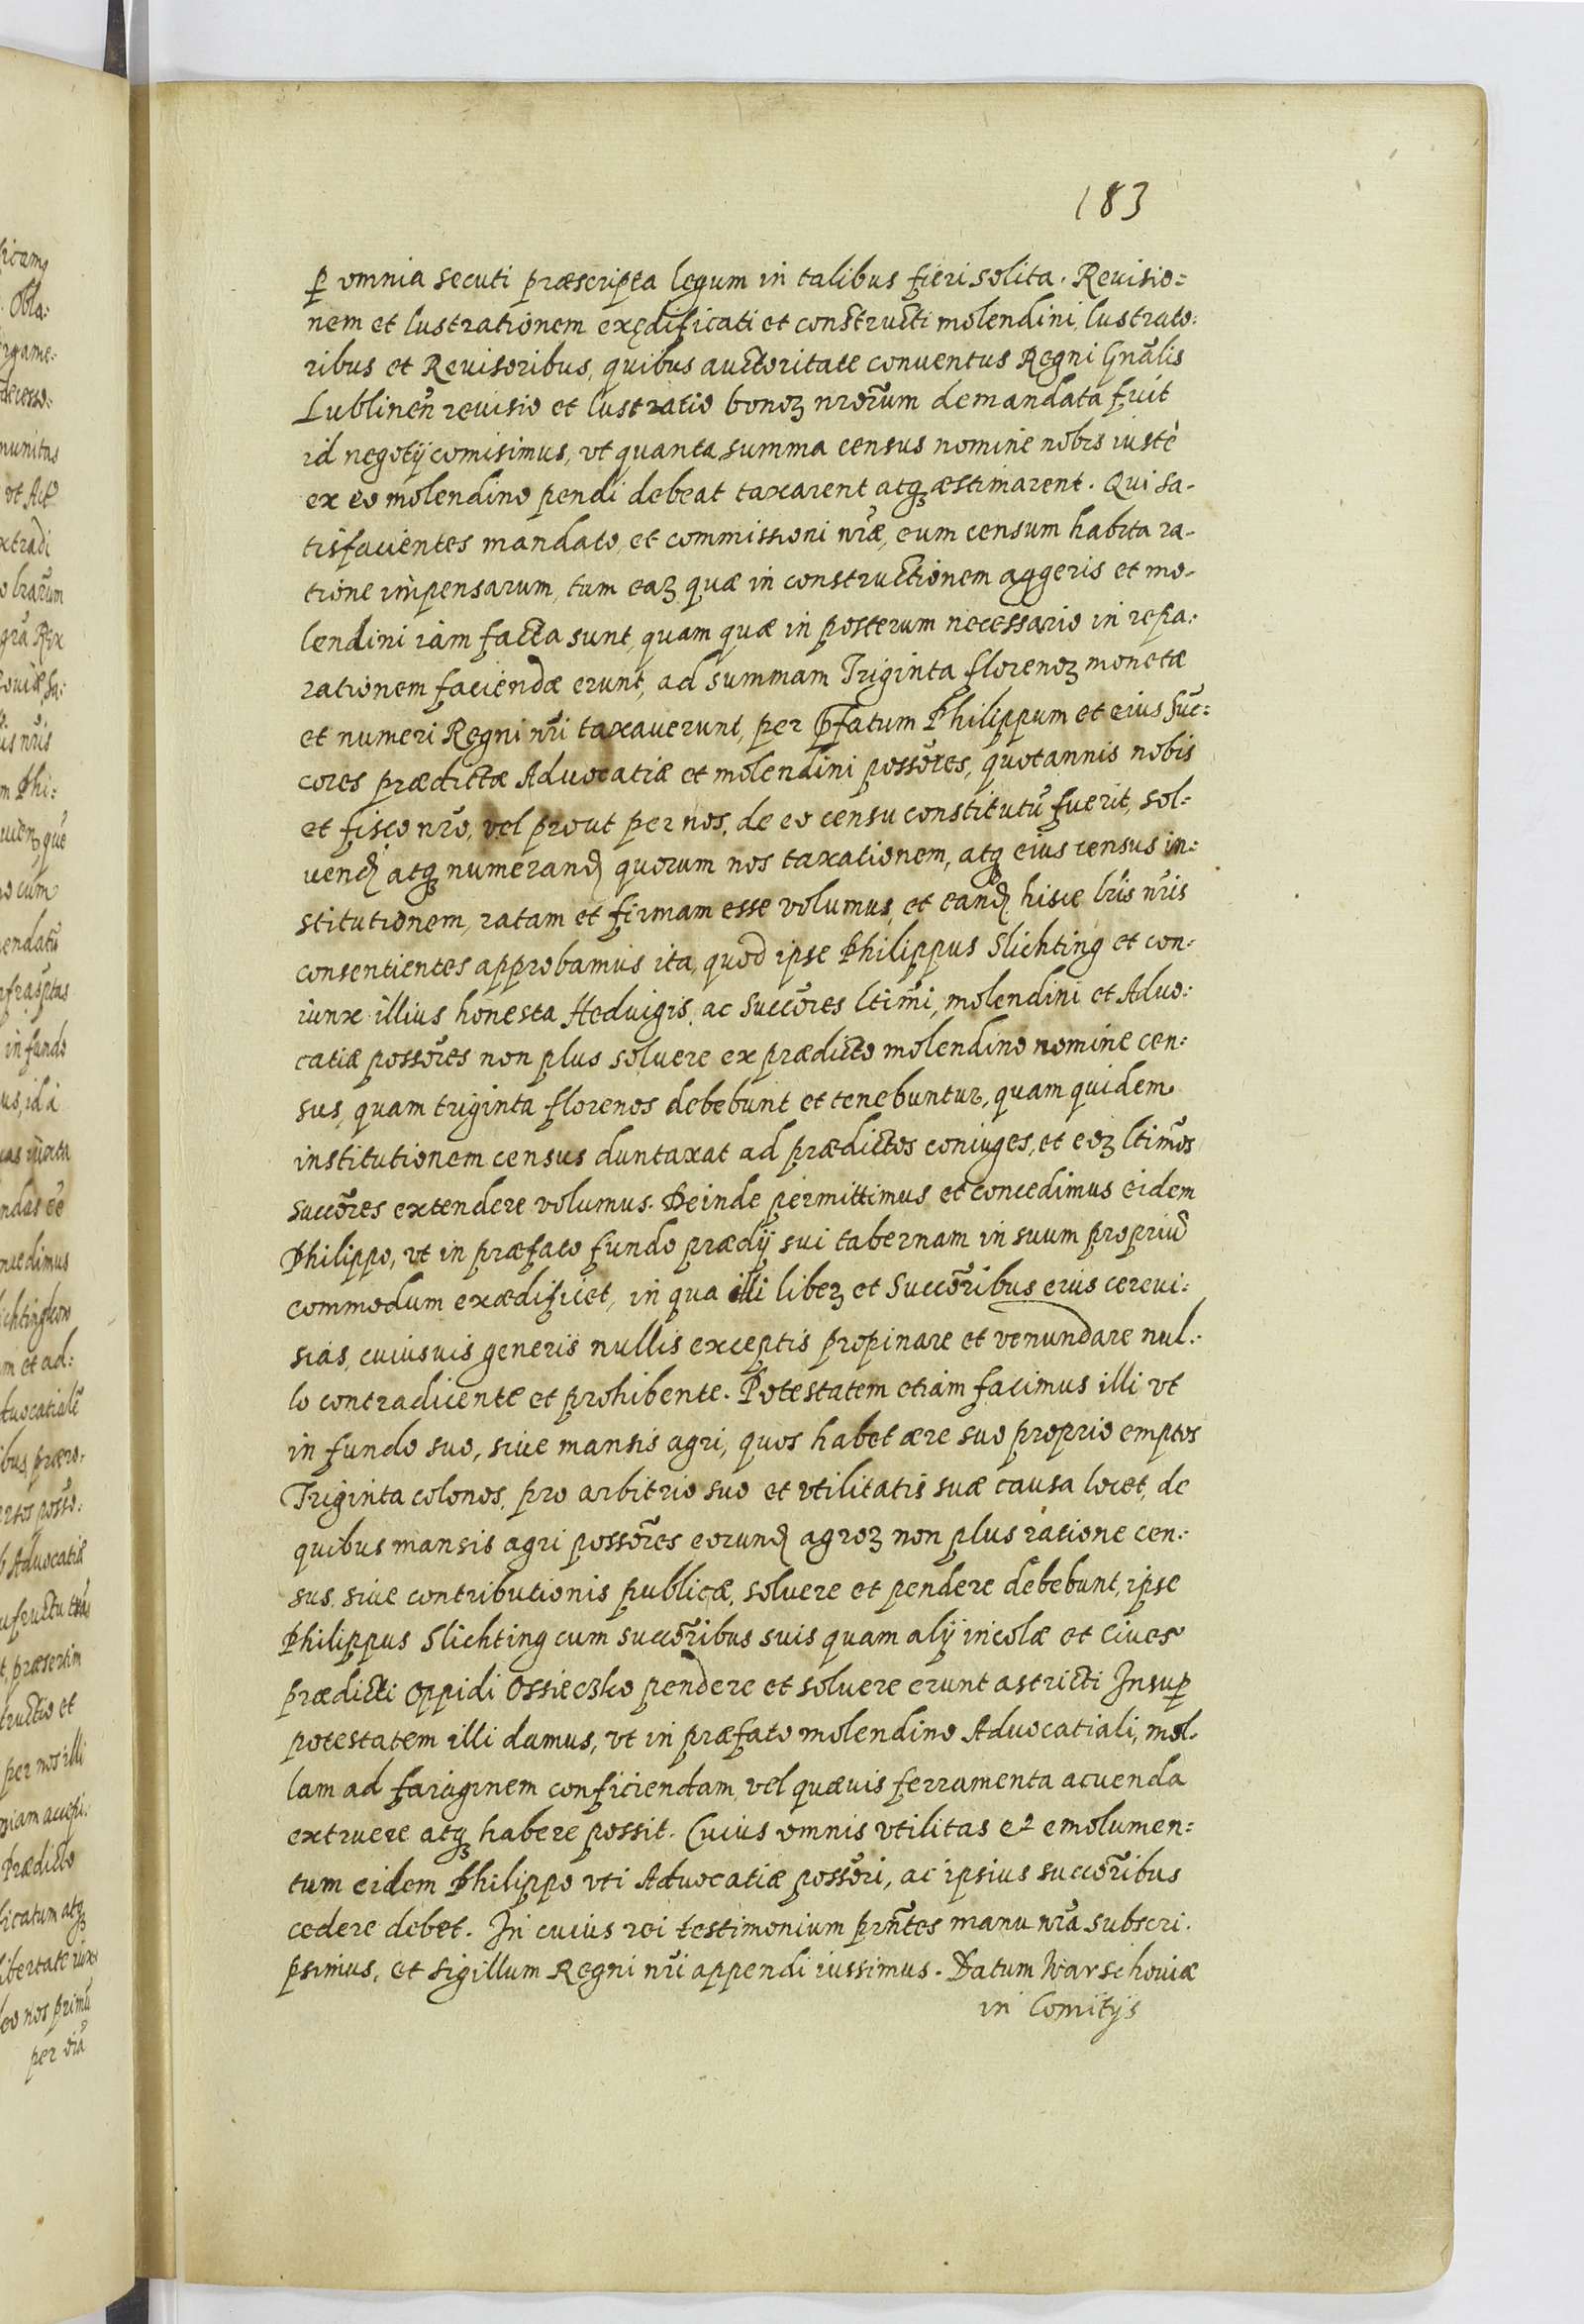 183
ꝑ omnia secuti præscripta legum in talibus fieri solita. Reuisio:
nem et lustrationem exędificati et constructi molendini, lustrato:
ribus et Reuisoribus, quibus auctoritate conuentus Regni Gnãlis
Lublineñ reuisio et lustratio bonoꝝ nrorũm demandata fuit
id negotij comisimus, vt quanta summa census nomine nobis iustè
ex eo molendino pendi debeat taxarent atqꝫ æstimarent. Qui sa-
tisfacientes mandato, et commissioni nr̃æ, eum censum habita ra-
tione impensarum, tum eaꝝ quæ in constructionem aggeris et mo-
lendini iam facta sunt, quam quæ in posterum necessario in repa:
rationem faciendæ erunt, ad summam Triginta florenoꝝ monetæ
et numeri Regni nr̃i taxauerunt, per p̃fatum Philippum et eius Suc̃:
cores prædictæ Aduocatiæ et molendini possõres, quotannis nobis
et fisco nr̃o, vel prout per nos, de eo censu constitutũ fuerit, sol:
uend̃ atqꝫ numerand̃ quorum nos taxationem, atqꝫ eius census in:
stitutionem, ratam et firmam esse volumus, et eand̃ hisce lr̃is nr̃is
consentientes approbamus ita, quod ipse Philippus Slichting et con:
iunx illius honesta Heduigis, ac Succõres ltimi, molendini et Aduo:
catiæ possõres non plus soluere ex prædicto molendino nomine cen:
sus, quam triginta florenos debebunt et tenebuntur, quam quidem
institutionem census duntaxat ad prædictos coniuges, et eoꝝ ltim̃os
succõres extendere volumus. Deinde permittimus et concedimus eidem
Philippo, vt in præfato fundo prædij sui tabernam in suum propriũ
commodum exædificet, in qua illi libeꝝ et Succõribus eius cereui:
sias, cuiusuis generis nullis exceptis propinare et venundare nul:
lo contradicente et prohibente. Potestatem etiam facimus illi vt
in fundo suo, siue mansis agri, quos habet ære suo proprio emptos
Triginta colonos, pro arbitrio suo et vtilitatis suæ causa locet, de
quibus mansis agri possõres eorund̃ agroꝝ non plus ratione cen:
sus, siue contributionis publicæ, soluere et pendere debebunt, ipse
Philippus Slichting cum succõribus suis quam alij incolæ et Ciues
prædicti Oppidi Ossieczko pendere et soluere erunt astricti Insuꝑ
potestatem illi damus, vt in præfato molendino Aduocatiali, mol:
lam ad fariginem conficiendam, vel quæuis ferramenta acuenda
extruere atqꝫ habere possit. Cuius omnis vtilitas et emolumen:
tum eidem Philippo vti Aduocatiæ possõri, ac ipsius succõribus
cedere debet. In cuius rei testimonium prñtes manu nr̃a subscri:
psimus, et Sigillum Regni nr̃i appendi iussimus. Datum Warschouiæ
in Comitijs